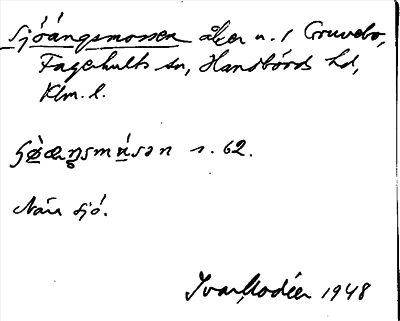 Sjöängsmossen åker u. / Gruvebo,
Fagerhults sn, Handbörds hd,
Klm. l.
s. 62.
Nära sjö.
Ivar Modéer 1948